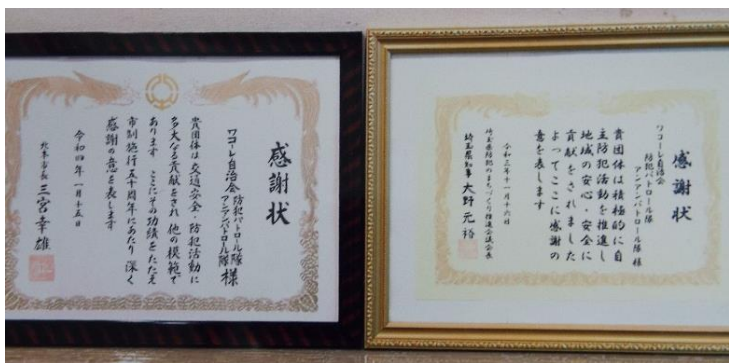 感謝状
ワコーレ自治会 防犯パトロール隊
アンアンパトロール隊 様
貴団体は交通安全・防犯活動に
多大なる貢献をされ他の模範で
あります ここにその功績をたたえ
市制施行五十周年にあたり 深く
感謝の意を表します
令和四年一月十五日
北本市長 三宮幸雄
感謝状
ワコーレ自治会
防犯パトロール隊
アンアンパトロール隊 様
貴団体は積極的に自
主防犯活動を推進し
地域の安心・安全に
貢献をされました
よってここに感謝の
意を表します
令和三年十一月十六日
埼玉県防犯のまちづくり推進会議会長
埼玉県知事 大野元裕